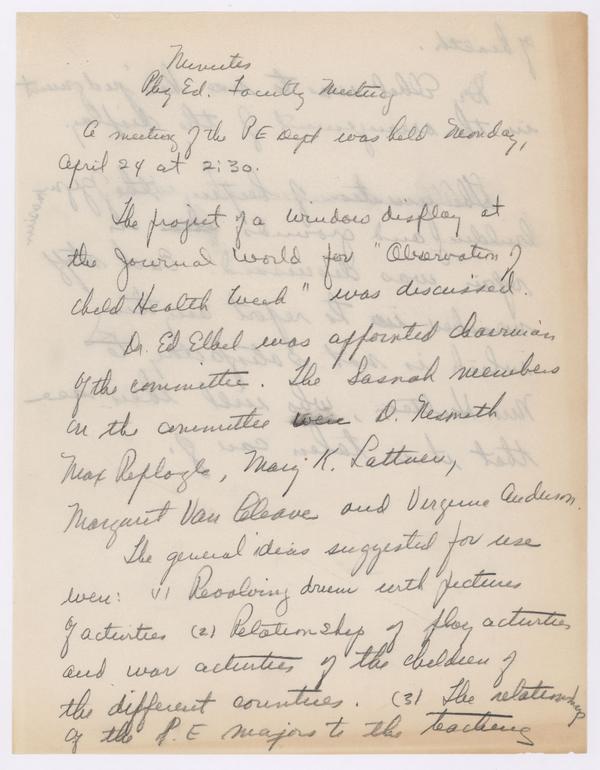 Minutes
Phy Ed. Faculty Meeting
A meeting of the P E Dept was held Monday,
April 24 at 2:30.
The project of a window display at
the Journal World for "Observation of
Child Health Week" was discussed.
Dr. Ed Elbel was appointed chairman
of the committee. The Sasnak members
on the committee were D. Nesmith
Max Replogle, Mary K. Lattner,
Margaret Van Cleave and Virginia Anderson.
The general ideas suggested for use
were: (1) Revolving drum with pictures
of activities (2) Relationship of play activities
and war activities of the children of
the different countries. (3) The relationship
of the P.E majors to the teaching